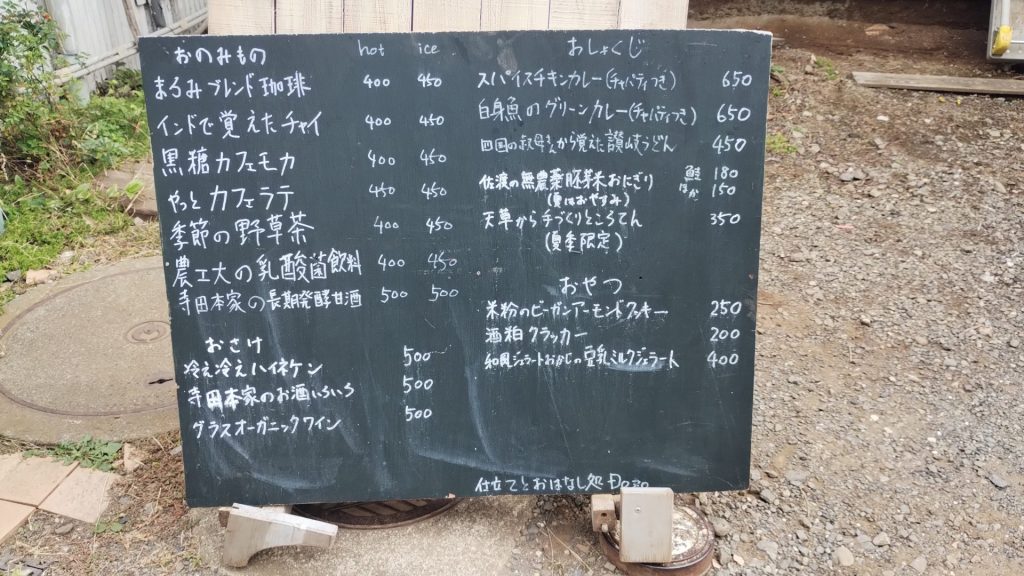 おのみもの hot ice
まるみブレンド珈琲 400 450
インドで覚えたチャイ 400 450
黒糖カフェモカ 400 450
やっとカフェラテ 450 450
季節の野草茶 400 450
農工大の乳酸菌飲料 400 450
寺田本家の長期発酵甘酒 500 500
おさけ
冷え冷えハイネケン 500
寺田本家のお酒いろいろ 500
グラスオーガニックワイン 500
おしょくじ
スパイスチキンカレー(チャパティつき) 650
白身魚のグリーンカレー(チャパティつき) 650
四国の叔母さんから覚えた讃岐うどん 450
佐渡の無農薬胚芽米おにぎり 鮭 180
ほか 150
(夏はおやすみ)
天草から手づくりところてん 350
(夏季限定)
おやつ
米粉のビーガンアーモンドクッキー 250
酒粕クラッカー 200
和風ジェラートおかじの豆乳ミルクジェラート 400
仕立てとおはなし処Dozo